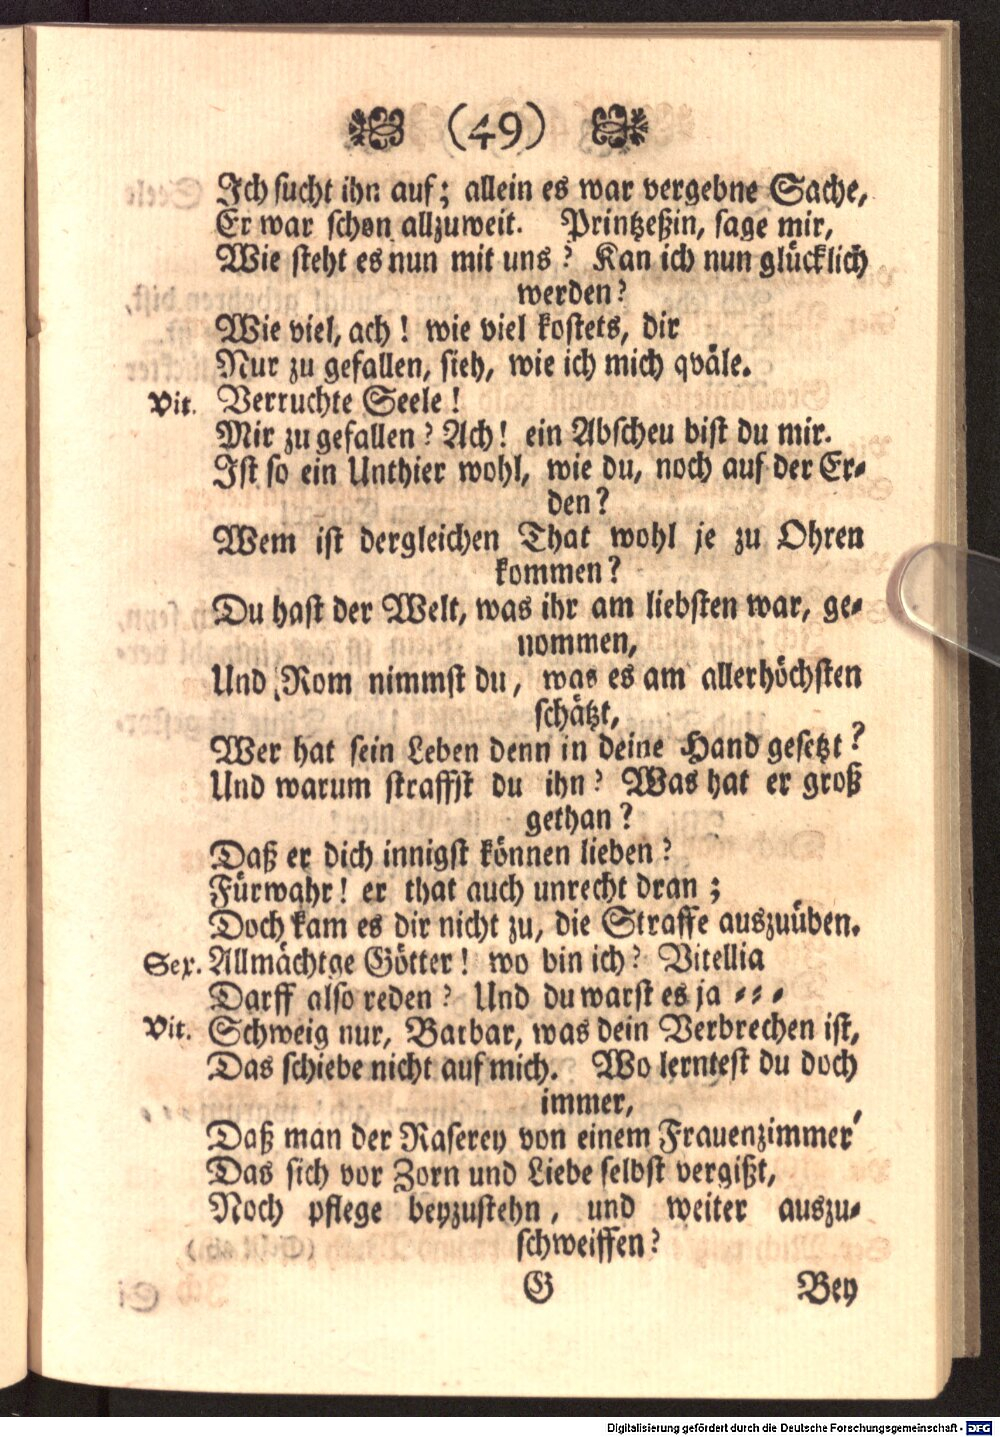 (49)
Ich sucht ihn auf; allein es war vergebne Sache,
Er war schon allzuweit. Printzeßin, sage mir,
Wie steht es nun mit uns? Kan ich nun glücklich
werden?
Wie viel, ach! wie viel kostets, dir
Nur zu gefallen, sieh, wie ich mich qväle.
Vit. Verruchte Seele!
Mir zu gefallen? Ach! ein Abscheu bist du mir.
Ist so ein Unthier wohl, wie du, noch auf der Er-
den?
Wem ist dergleichen That wohl je zu Ohren
kommen?
Du hast der Welt, was ihr am liebsten war, ge-
nommen,
Und Rom nimmst du, was es am allerhöchsten
schätzt,
Wer hat sein Leben denn in deine Hand gesetzt?
Und warum straffst du ihn? Was hat er groß
gethan?
Daß er dich innigst können lieben?
Fürwahr! er that auch unrecht dran;
Doch kam es dir nicht zu, die Straffe auszuüben.
Sex. Allmächtge Götter! wo bin ich? Vitellia
Darff also reden? Und du warst es ja - - -
Vit. Schweig nur, Barbar, was dein Verbrechen ist,
Das schiebe nicht auf mich. Wo lerntest du doch
immer,
Daß man der Raserey von einem Frauenzimmer,
Das sich vor Zorn und Liebe selbst vergißt,
Noch pflege beyzustehn, und weiter auszu-
schweiffen?
G Bey
Digitalisierung gefördert durch die Deutsche Forschungsgemeinschaft - DFG